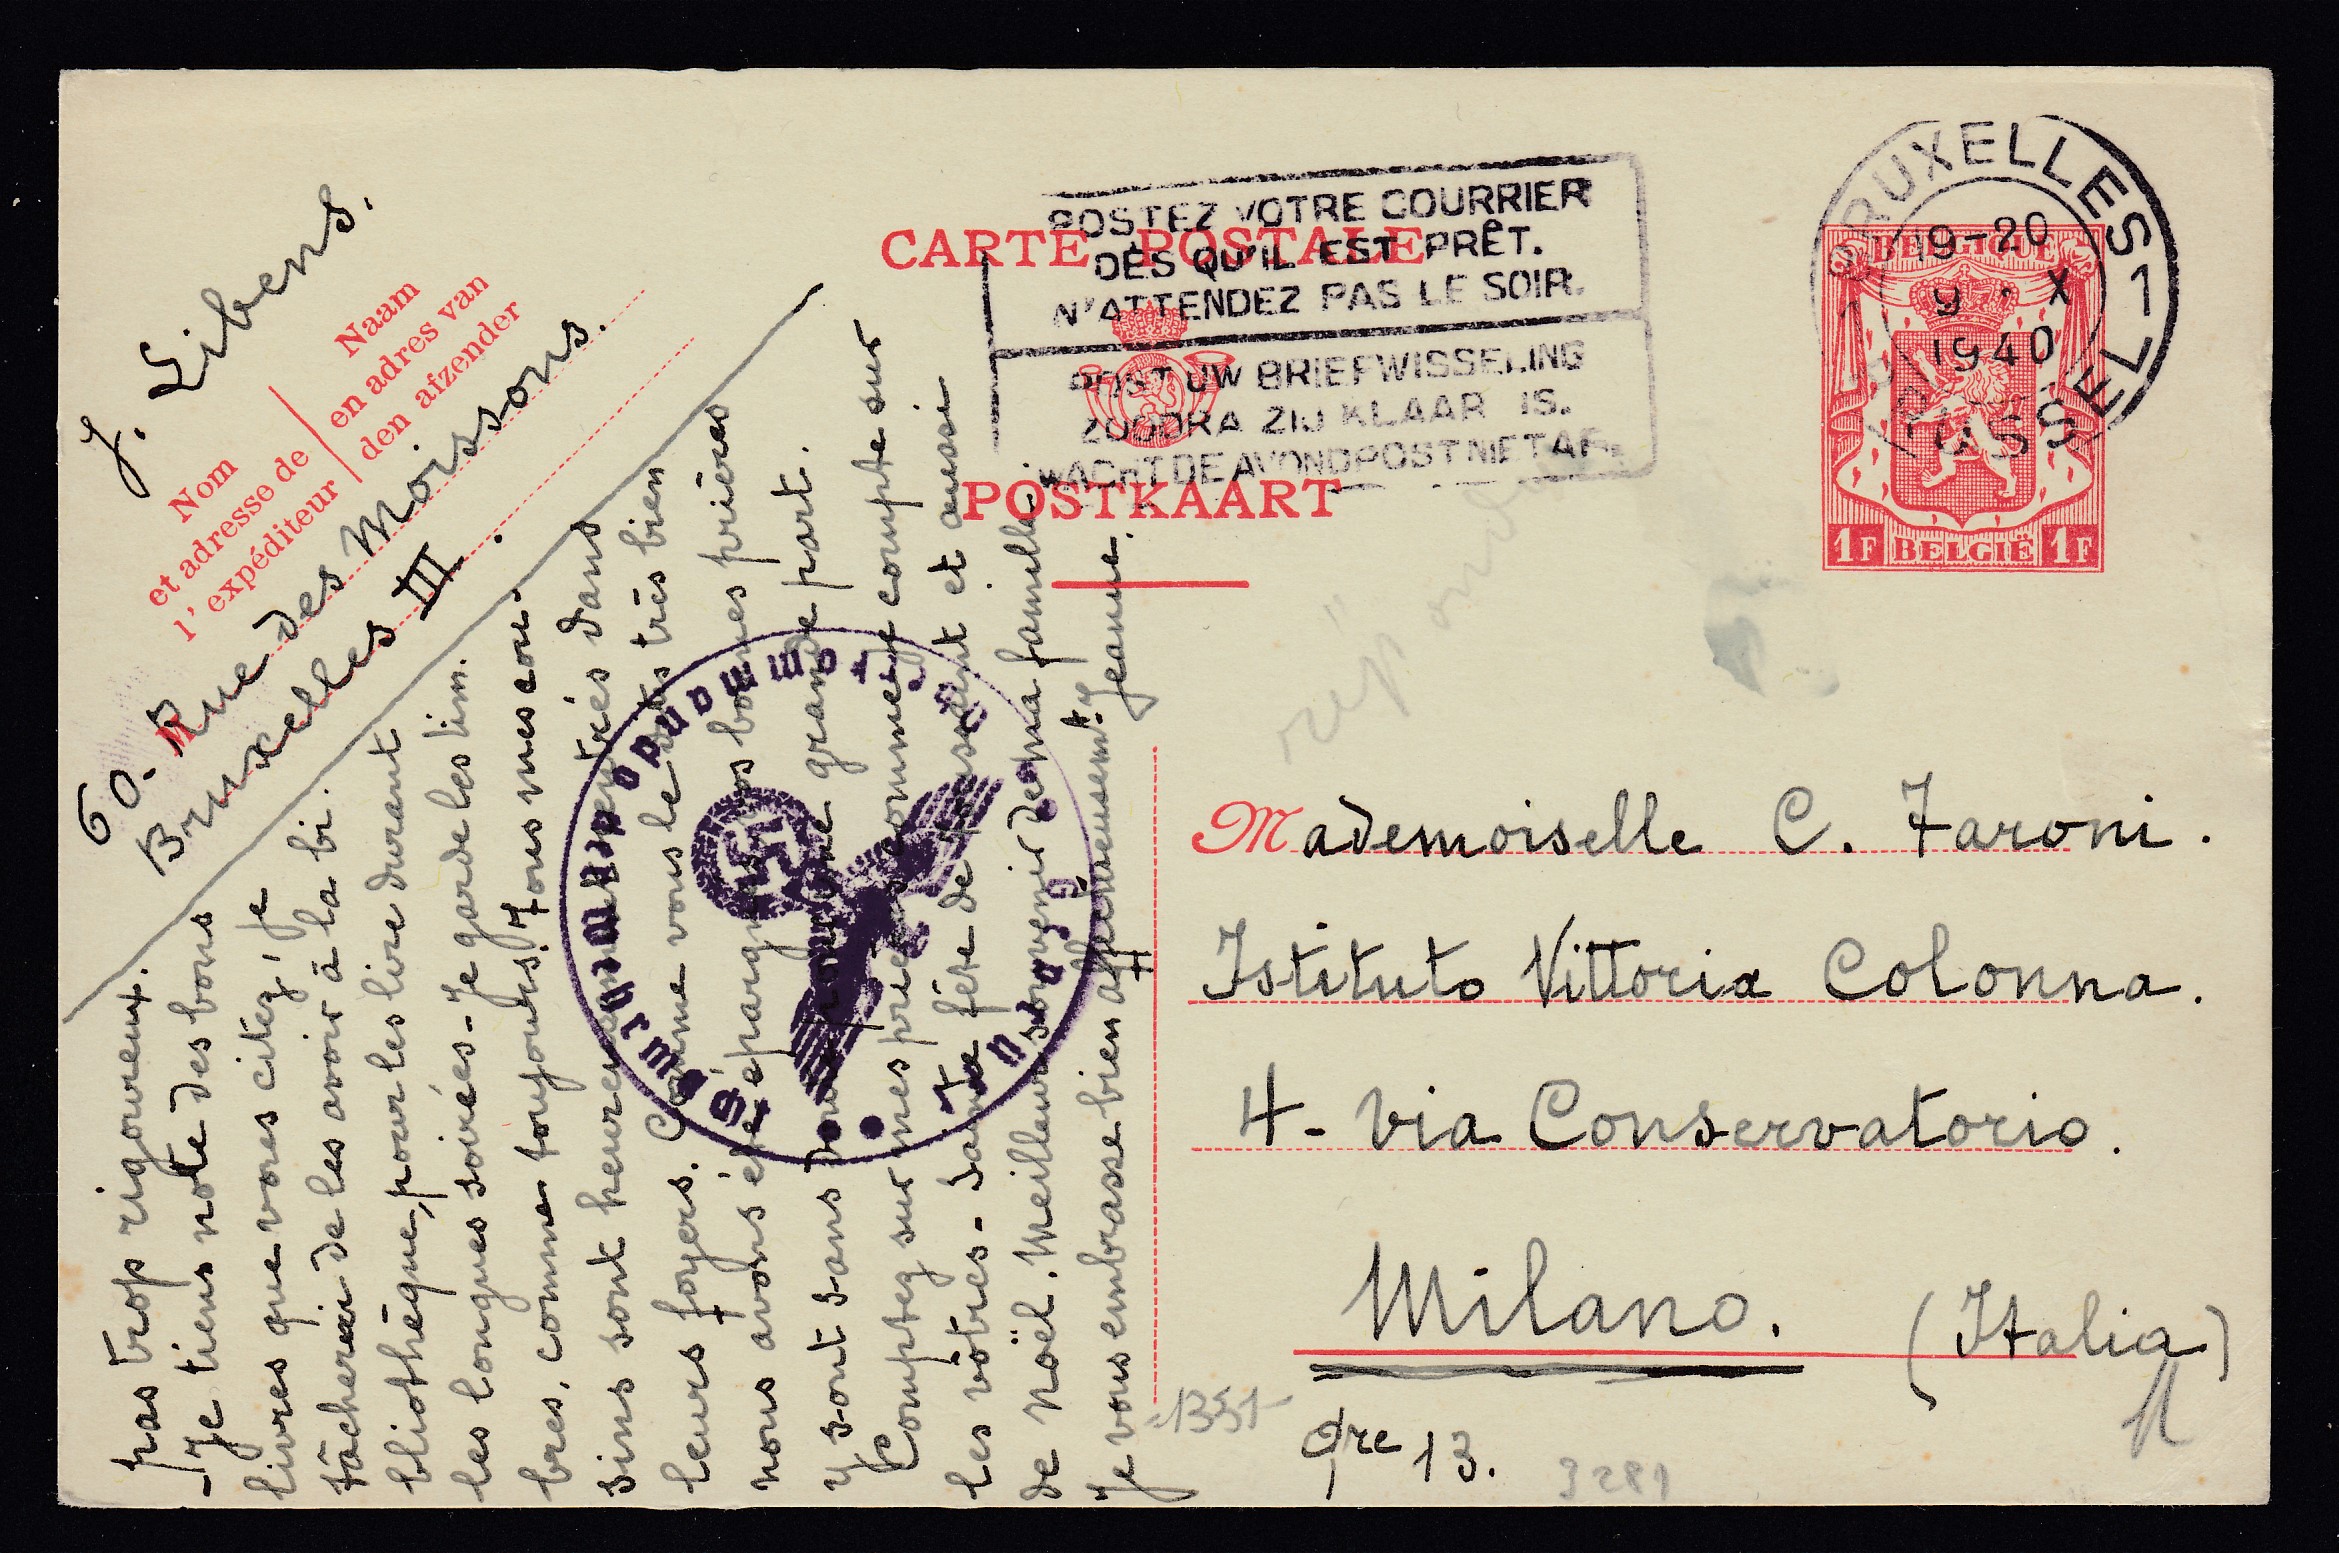 J. Libens.
Nom
et adresse de
l'expéditeur
Naam
en adres van
den afzender
60. Rue des Moissons.
Bruxelles III.
CARTE POSTALE
POSTKAART
POSTEZ VOTRE COURRIER
DÈS QU'IL EST PRÊT.
N'ATTENDEZ PAS LE SOIR.
POST UW BRIEFWISSELING
ZOODRA ZIJ KLAAR IS.
WACHT DE AVONDPOST NIET AF.
BRUXELLES 1
19-20
9 · X
1940
BRUSSEL 1
BELGIQUE
1F BELGIË 1F
pas trop rigoureux.
- Je tiens note des bons
livres que vous citez, je
tâcherai de les avoir à la bi-
bliothèque, pour les lire durant
les longues soirées - Je garde les tim-
bres, comme toujours. Tous mes cou-
sins sont heureusement rentrés dans
leurs foyers. Comme vous le dites très bien
nous avons été épargnés, vos bonnes prières
y sont sans doute pour une grande part.
Comptez sur mes prières comme je compte sur
les vôtres - Sainte fête de et aussi
de Noël. Meilleur souvenir de ma famille.
Je vous embrasse bien affectueusemt. Jeanne.
Oberkommando der Wehrmacht
Geprüft
répondu
Mademoiselle C. Faroni.
Istituto Vittoria Colonna.
4 - via Conservatorio.
Milano. (Italia)
1351
qre 13.
3281